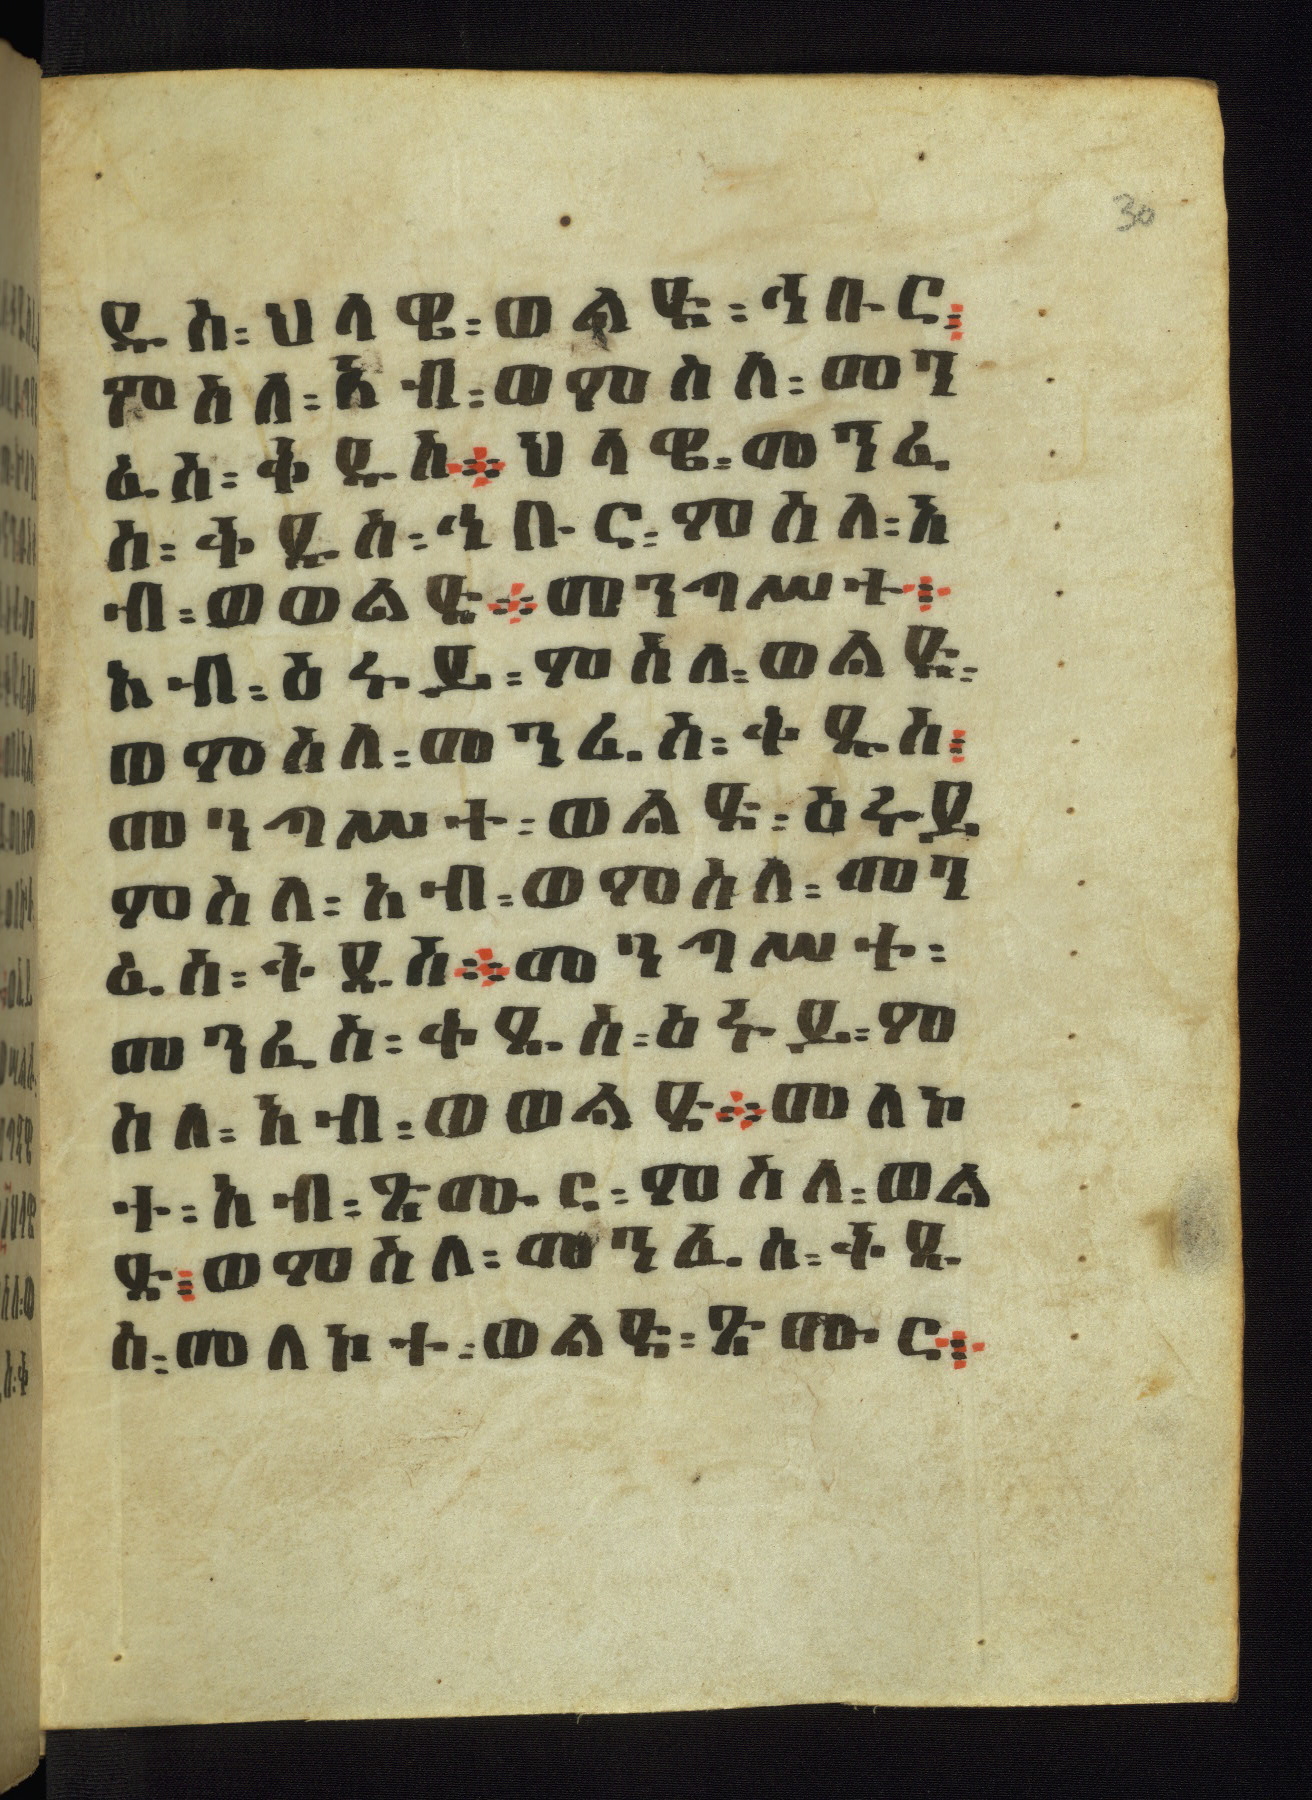 30
ዱስ፡ህላዌ፡ወልድ፡ኅቡር፡
ምስለ፡አብ፡ወምስለ፡መን
ፈስ፡ቅዱስ፨ህላዌ፡መንፈ
ስ፡ቅዱስ፡ኅቡር፡ምስለ፡አ
ብ፡ወወልድ፨መንግሥተ፡
አብ፡ዕሩይ፡ምስለ፡ወልድ፡
ወምስለ፡መንፈስ፡ቅዱስ፡
መንግሥተ፡ወልድ፡ዕሩይ
ምስለ፡አብ፡ወምስለ፡መን
ፈስ፡ቅዱስ፨መንግሥተ፡
መንፈስ፡ቅዱስ፡ዕሩይ፡ም
ስለ፡አብ፡ወወልድ፨መለኮ
ተ፡አብ፡ጽሙር፡ምስለ፡ወል
ድ፡ወምስለ፡መንፈስ፡ቅዱ
ስ፡መለኮተ፡ወልድ፡ጽሙር፡